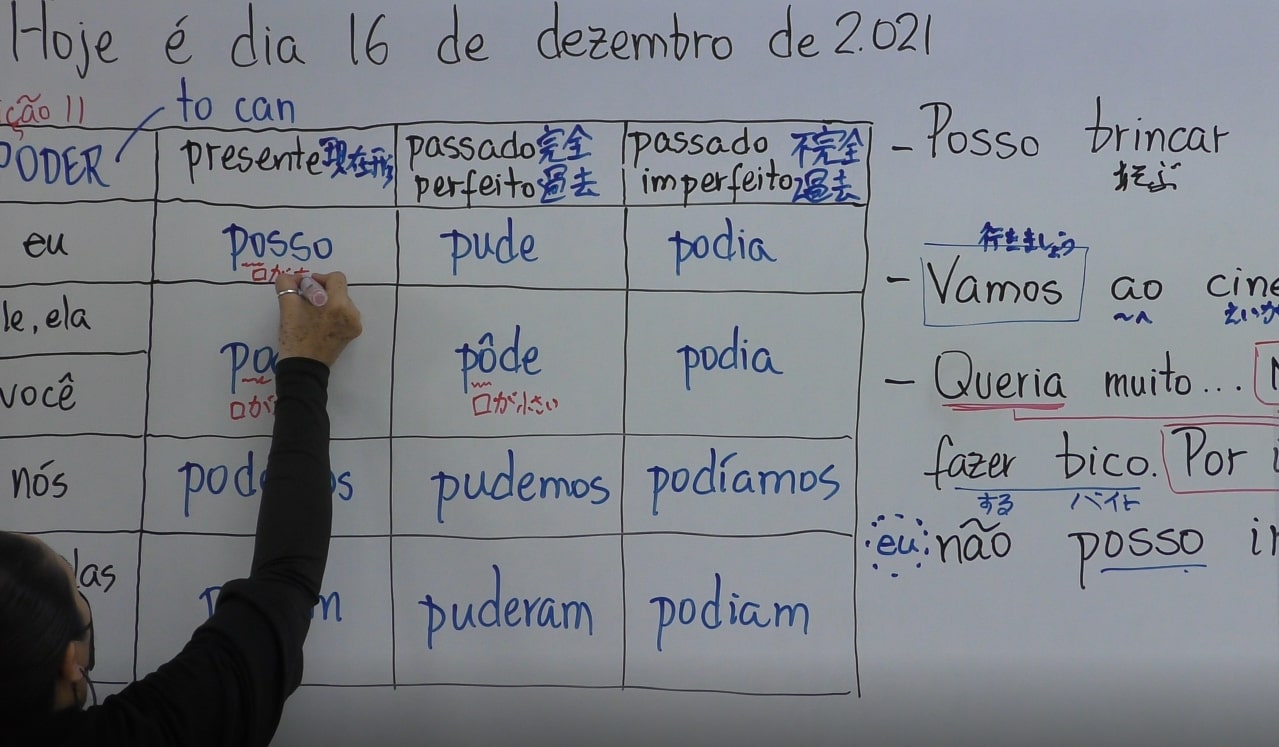 Hoje é dia 16 de dezembro de 2.021
ção 11 to can
PODER presente 現在形 passado 完全 passado 不完全
perfeito 過去 imperfeito 過去
eu posso pude podia
le, ela
você pôde podia
口が小さい
nós pudemos podíamos
las puderam podiam
- Posso brincar
あそぶ
行きましょう
- Vamos ao cine
〜へ えいが
- Queria muito...
fazer bico. Por i
する バイト
eu não posso ir